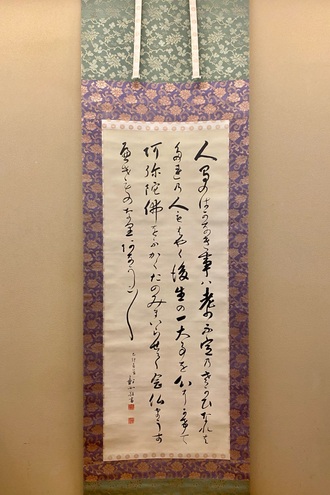 人間のはかなき事ハ老少不定のさかひなれは
たれの人もはやく後生の一大事を心にかけて
阿弥陀佛をふかくたのみまいらせて念仏まうす
へきものなり